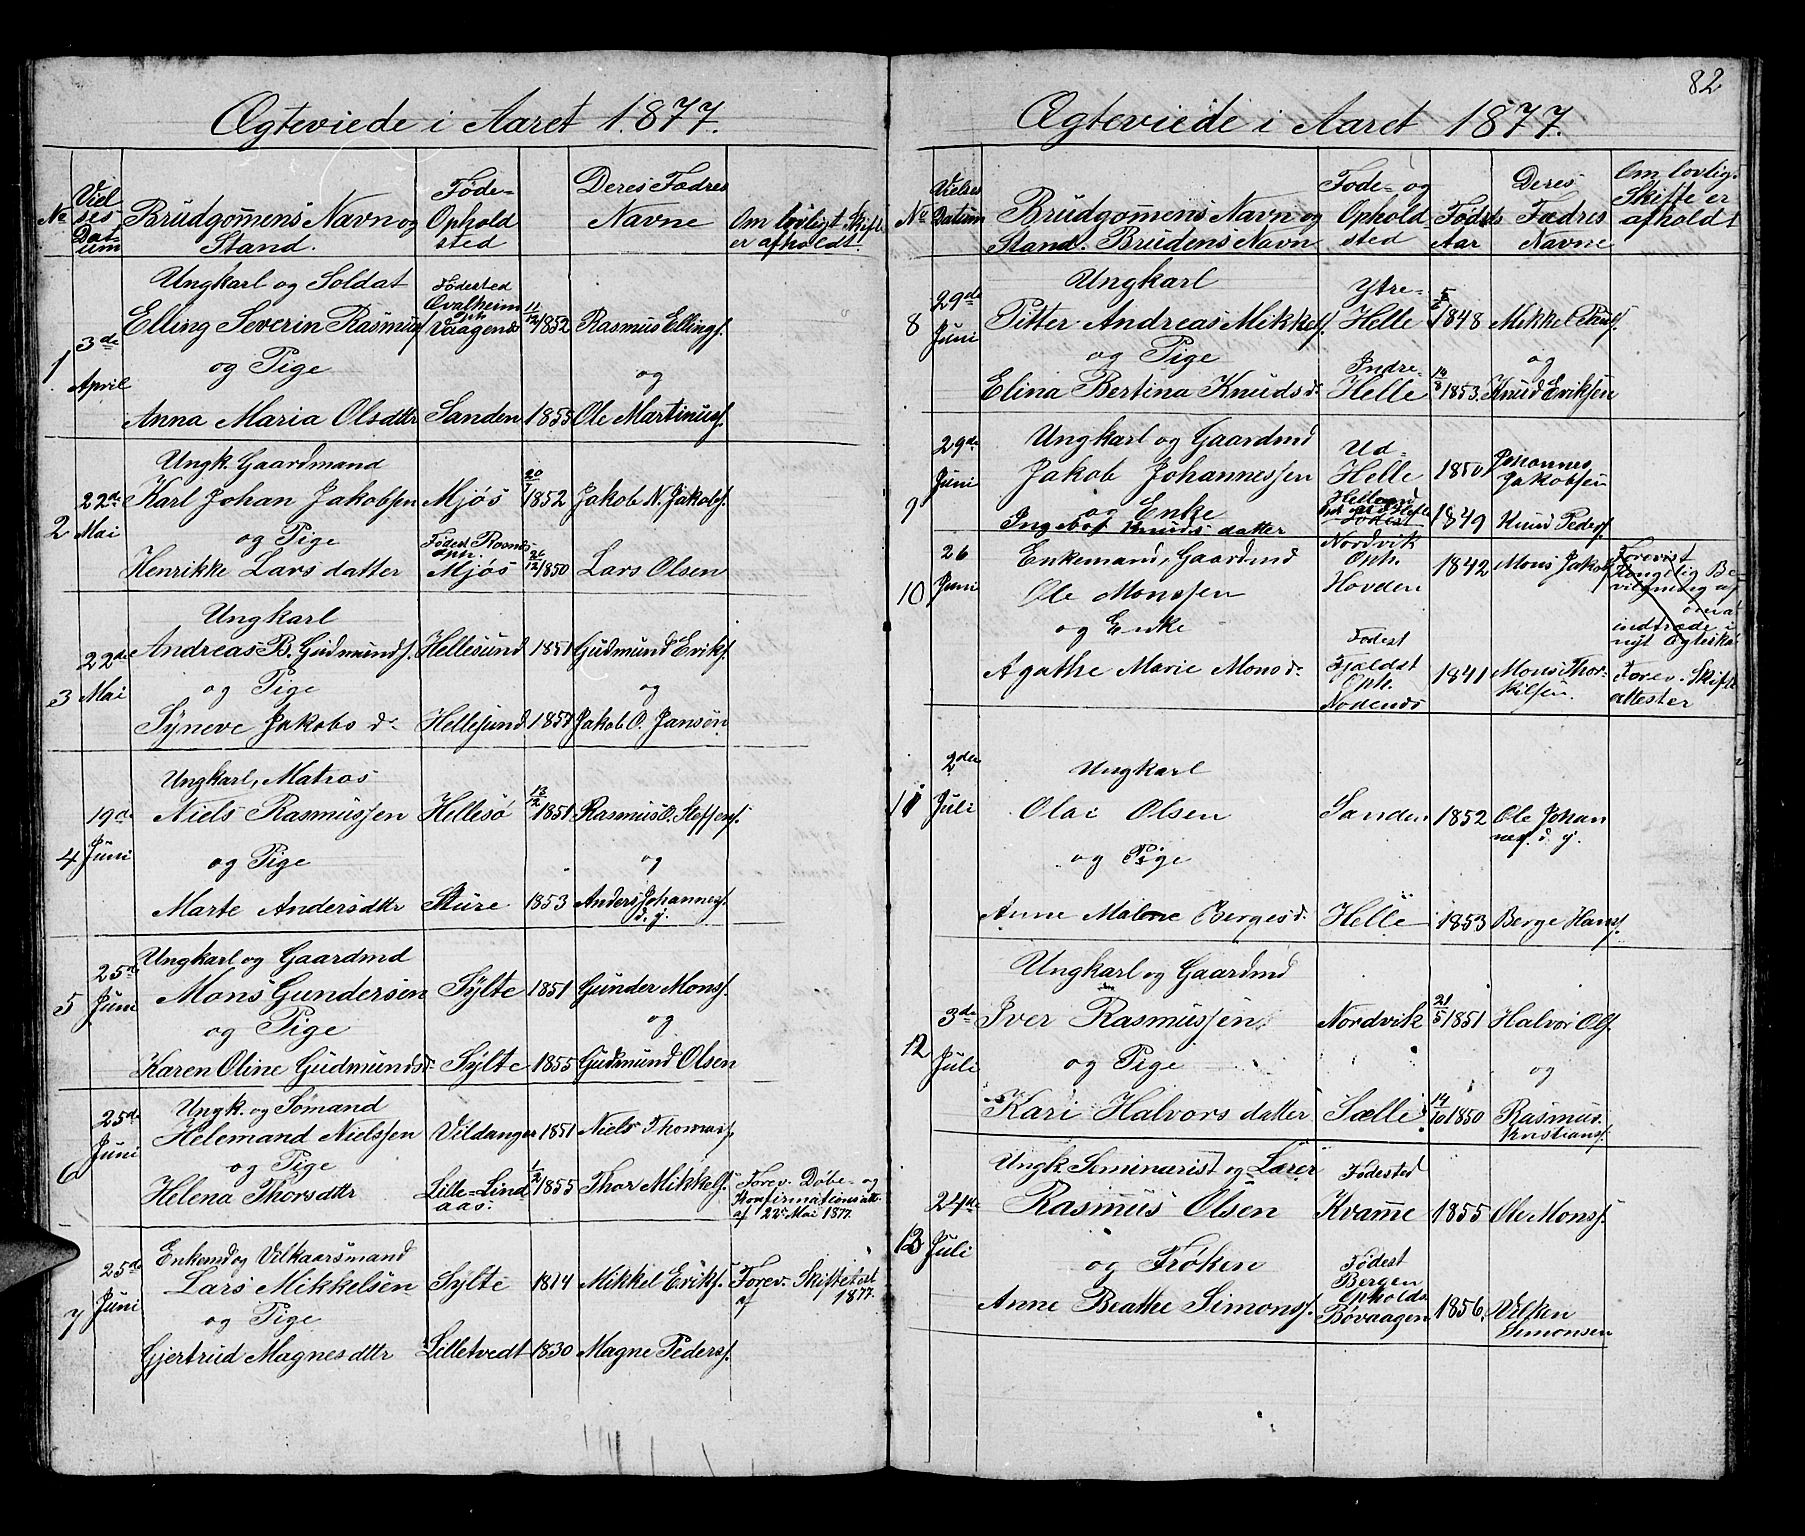 Ægteviede i Aaret 1877.
No
Viel
ses
Dat
um
Brudgommens Navn og
Stand.
Føde-
Ophold
sted
Deres Fædres
Navne
Om lovligt Skifte
er afholdt
1
3de
April
Ungkarl og Soldat
Elling Severin Rasmuss.
og Pige
Anna Maria Olsdttr
Fødested
Qvalheim
Oph.
Vaagenes
Sanden
11/12 1852
1855
Rasmus Ellings.
og
Ole Martinuss.
2
22de
Mai
Ungk. Gaardmand
Karl Johan Jakobsen
og Pige
Henrikke Lars datter
Mjøs
Fødest Rosnes
oph.
Mjøs
1852
26/12 1850
Jakob N. Jakobs.
Lars Olsen
3
22de
Mai
Ungkarl
Andreas B. Gudmunds.
og Pige
Syneve Jakobs d.
Hellesund
Hellesund
1851
1857
Gudmund Eriks.
og
Jakob O. Jansøn
4
19de
Juni
Ungkarl, Matros
Niels Rasmussen
og Pige
Marte Andersdttr
Hellesø
Sture
13/12 1851
1853
Rasmus O. Steffens.
og
Anders Johanness.
d. y.
5
25de
Juni
Ungkarl og Gaardmd
Mons Gundersen
og Pige
Karen Oline Gudmundsd.
Sylte
Sylte
1851
1855
Gunder Mons.
og
Gudmund Olsen
6
25de
Juni
Ungk. og Sømand
Helemand Nielssen
og Pige
Helena Thorsdttr
Vildanger
Lille-Lind
aas.
1851
1/2 1855
Niels Thomass.
Thor Mikkels.
Forev. Døbe- og
Konfirmationsatt.
af 22. Mai 1877.
7
25de
Juni
Enkemd og Vilkaarsmand
Lars Mikkelsen
og Pige
Gjertrud Magnes dttr
Sylte
Lilletvedt
1814
1830
Mikkel Eriks.
Magne Peders.
Forev. Skifteatt
af 1877.
82
Ægteviede i Aaret 1877.
No
Vielses
Datum
Brudgommens Navn og
Stand. Brudens Navn
Føde- og
Ophold
sted
Føds
Aar
Deres
Fædres
Navne
Om lovlig
Skifte er
afholdt
8
29de
Juni
Ungkarl
Pitter Andreas Mikkels.
og Pige
Elina Bertina Knuds d.
Ytre-
Helle
Indre-
Helle
1848
1853.
Mikkel
og
Knud Eriksen
9
29de
Juni
Ungkarl og Gaardmd
Jakob Johannessen
og Enke
Ingebor Knuds datter
Ud-
Helle
1850
1849
Johannes
Jakobsen
Knud Peders.
10
26
Juni
Enkemand, Gaardmd
Ole Monssen
og Enke
Agathe Marie Mons d.
Fødest
Nordvik
Oph.
Hovden
Fødest
Fjeldst
Oph.
Nodenes
1842
1841
Mons Jakobs.
Mons Thor-
kilsen.
Forevist
Kongelig Be-
vilgning af
indtræde i
nyt Ægteskab
Forev. Skifte
attester
11
2den
Juli
Ungkarl
Olai Olsen
og Pige
Anne Malene Berges d.
Sanden
Helle
1852
1853
Ole Johan
nes. d. y.
Berge Hans.
12
3de
Juli
Ungkarl og Gaardmd
Iver Rasmussen
og Pige
Kari Halvors datter
Nordvik
Sælle
21/5 1851
14/10 1850
Halvor Ols.
og
Rasmus
Kristians.
13
24de
Juli
Ungk. Seminarist og Lærer
Rasmus Olsen
og Frøken
Anne Beathe Simons.
Fødested
Kvamme
Fødest
Bergen
Opholds
Bøvaagen
1855
1856.
Ole Mons.
Vilken
Simonsen